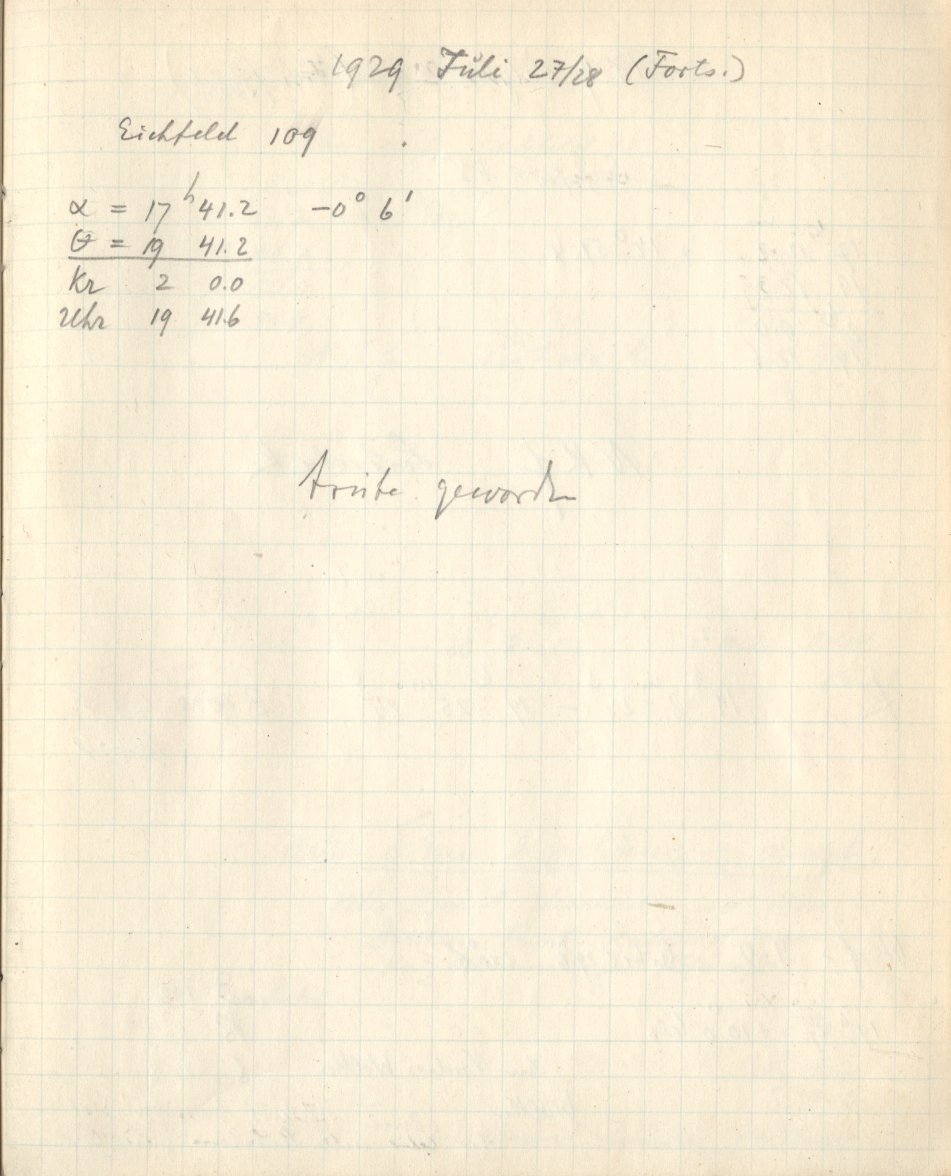 1929 Juli 27/28 (Forts.)
Eichfeld 109
α = 17ʰ 41.2 −0° 6'
θ = 19 41.2
Kr 2 0.0
Uhr 19 41.6
trübe geworden